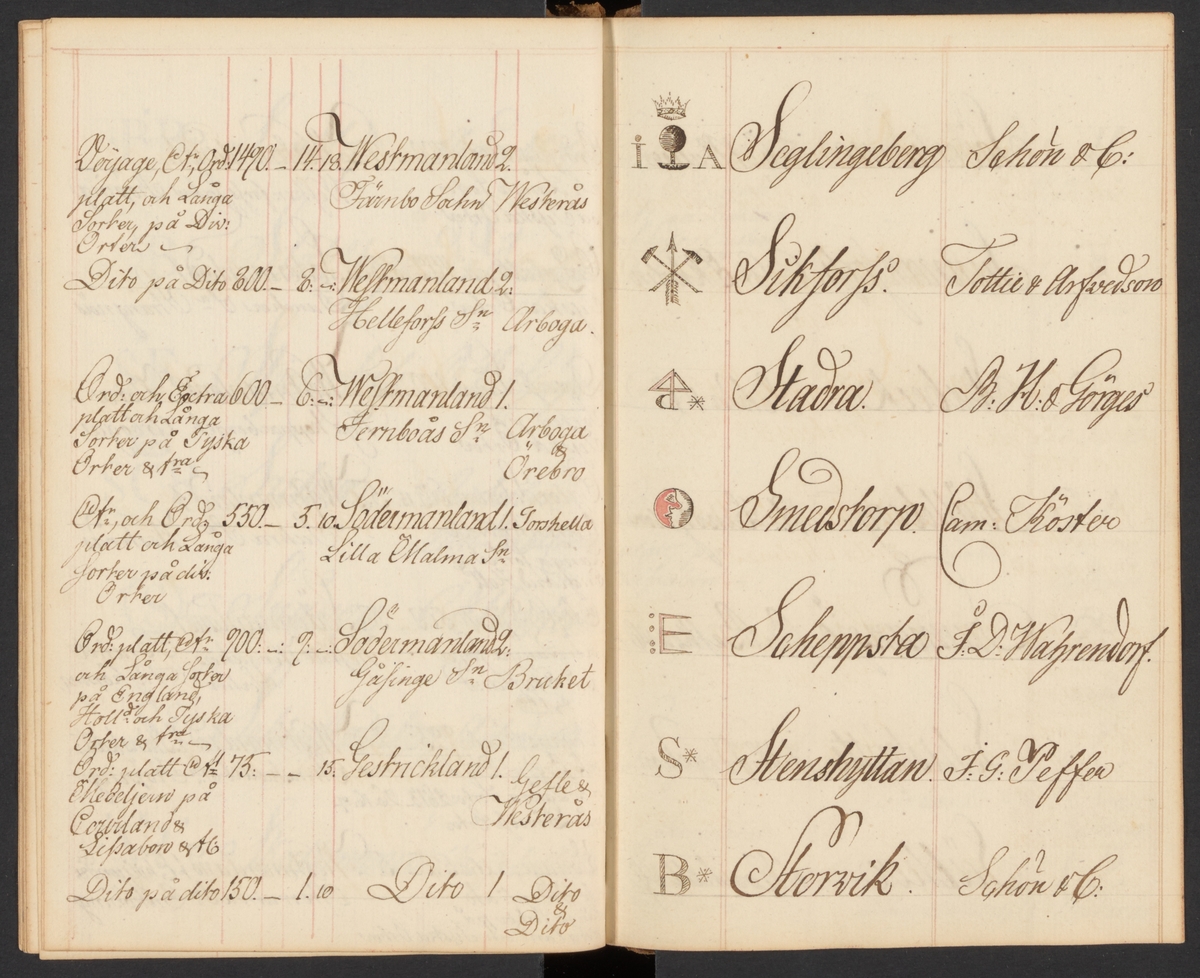 Voyage, Ctr, Ord: 1490. – 14. 18. Westmanland 2.
platt, och Långa Färnbo Sochn Westerås
Sorter, på Div:
Orter
Dito på Dito 800. – 8: –: Westmanland 2:
Helleforss Sn Arboga.
Ord: och Extra 600 – 6: –: Westmanland 1.
platt och Långa Fernboås Sn Arboga
Sorter på Tyska &
Orter & fra Örebro
Ctr, och Ord, 550. – 5. 10. Södermanland 1. Torshella
platt och Långa Lilla Malma Sn
Sorter på div:
Orter
Ord: platt, Ctr 900: –: 9: –: Södermanland 2:
och Långa Sorter Gåsinge Sn Bruket
på England,
Holld: och Tyska
Orter & fra
Ord: platt Ctr 75: – – 15. Gestrickland 1. Gefle &
Mebeljern på Westerås
Courland &
Lissabon &
Dito på dito 150. – 1. 10 Dito 1 Dito
&
Dito
I A Seglingeberg Schön & C:
Sikforss. Tottie & Arfvedson
P* Stadra. B: H: & Görges
Smedstorp. Cam: Köster
E Scheppsta J: D: Wahrendorf.
S* Stenshyttan. J: G: Peffer
B* Storvik. Schön & C: